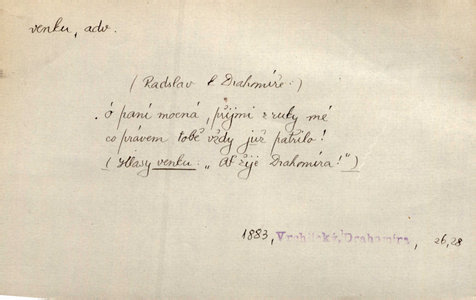 venku, adv.
(Radslav k Drahomíře:)
ó paní mocná, přijmi z ruky mé
co právem tobě vždy již patřilo!
(Hlasy venku: „Ať žije Drahomíra!")
1883, Vrchlický, Drahomíra, 26,28